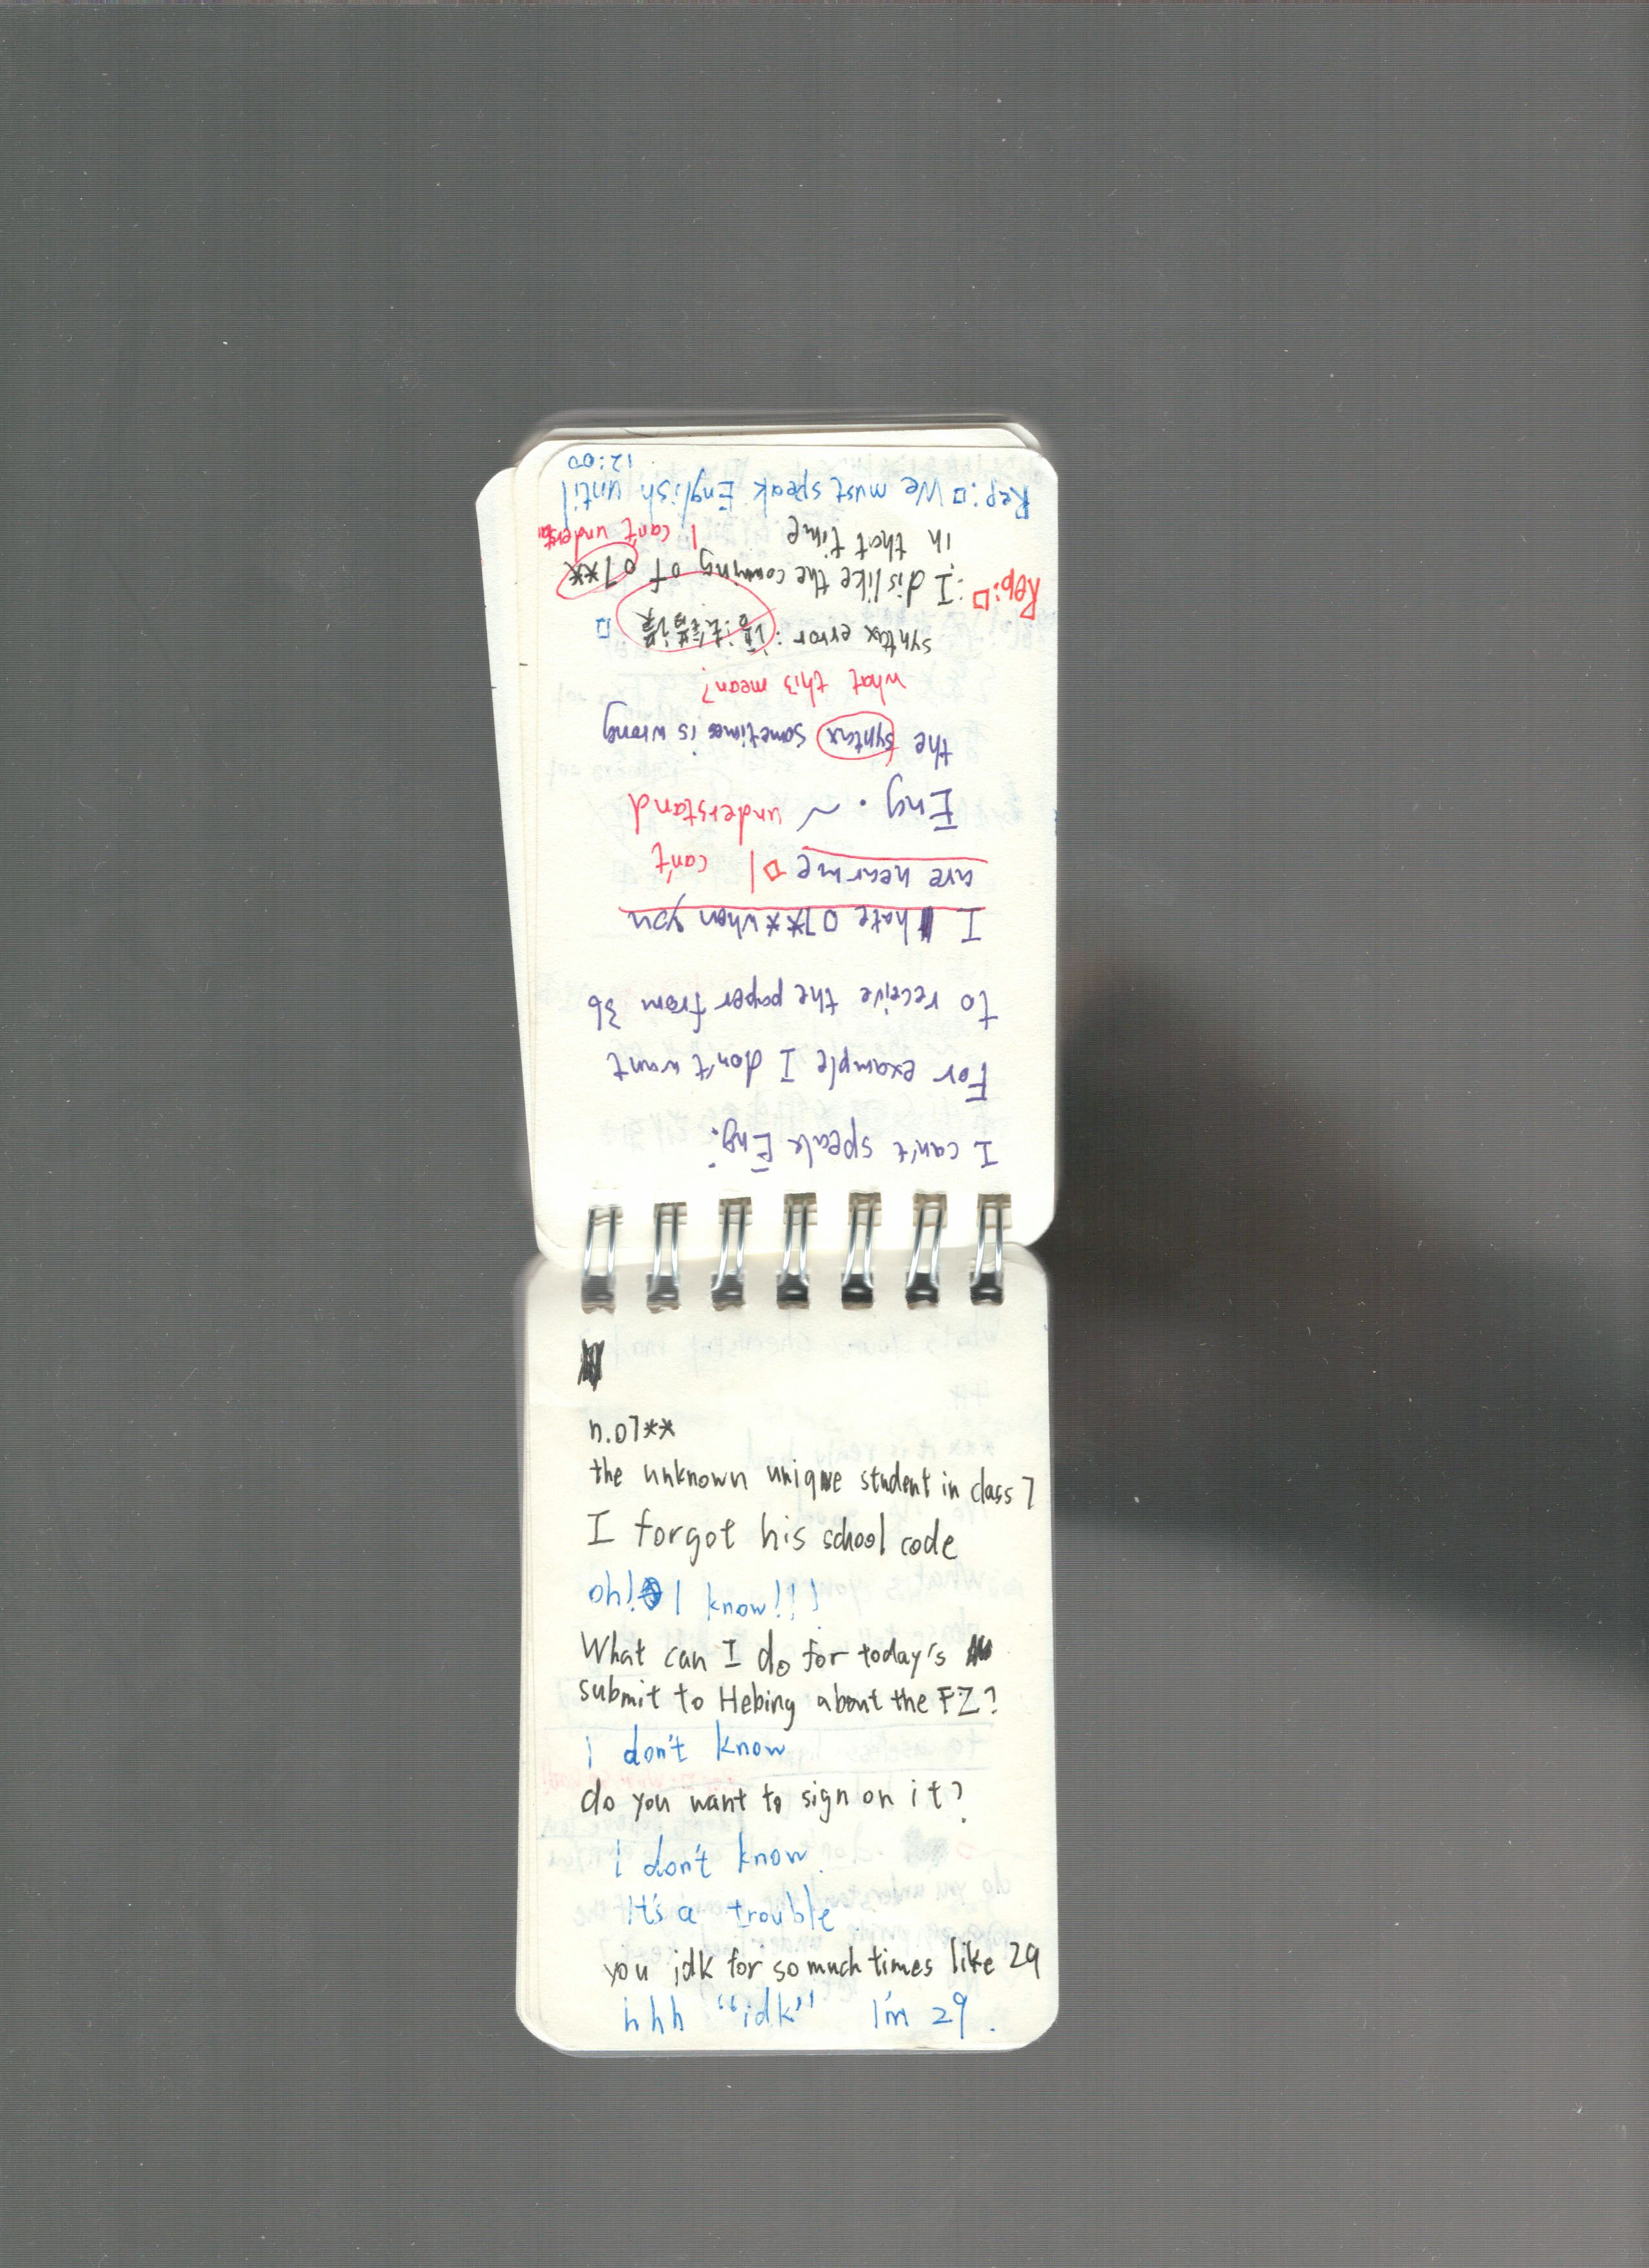 I can't speak Eng.
For example I don't want
to receive the paper from 36
I hate 07** when you
are near me □ I can't
Eng. ~ understand
the syntax sometimes is wrong
what this mean?
syntax error: 语法错误 □
Rep:□: I dislike the comming of 07**
in that time I can't understan
Rep:□ We must speak English until
12:00
n.07**
the unknown unique student in class 7
I forgot his school code
oh! I know!!!
What can I do for today's
submit to Hebing about the FZ?
i don't know
do you want to sign on it?
i don't know.
It's a trouble.
you idk for so much times like 29
hhh "idk" I'm 29.